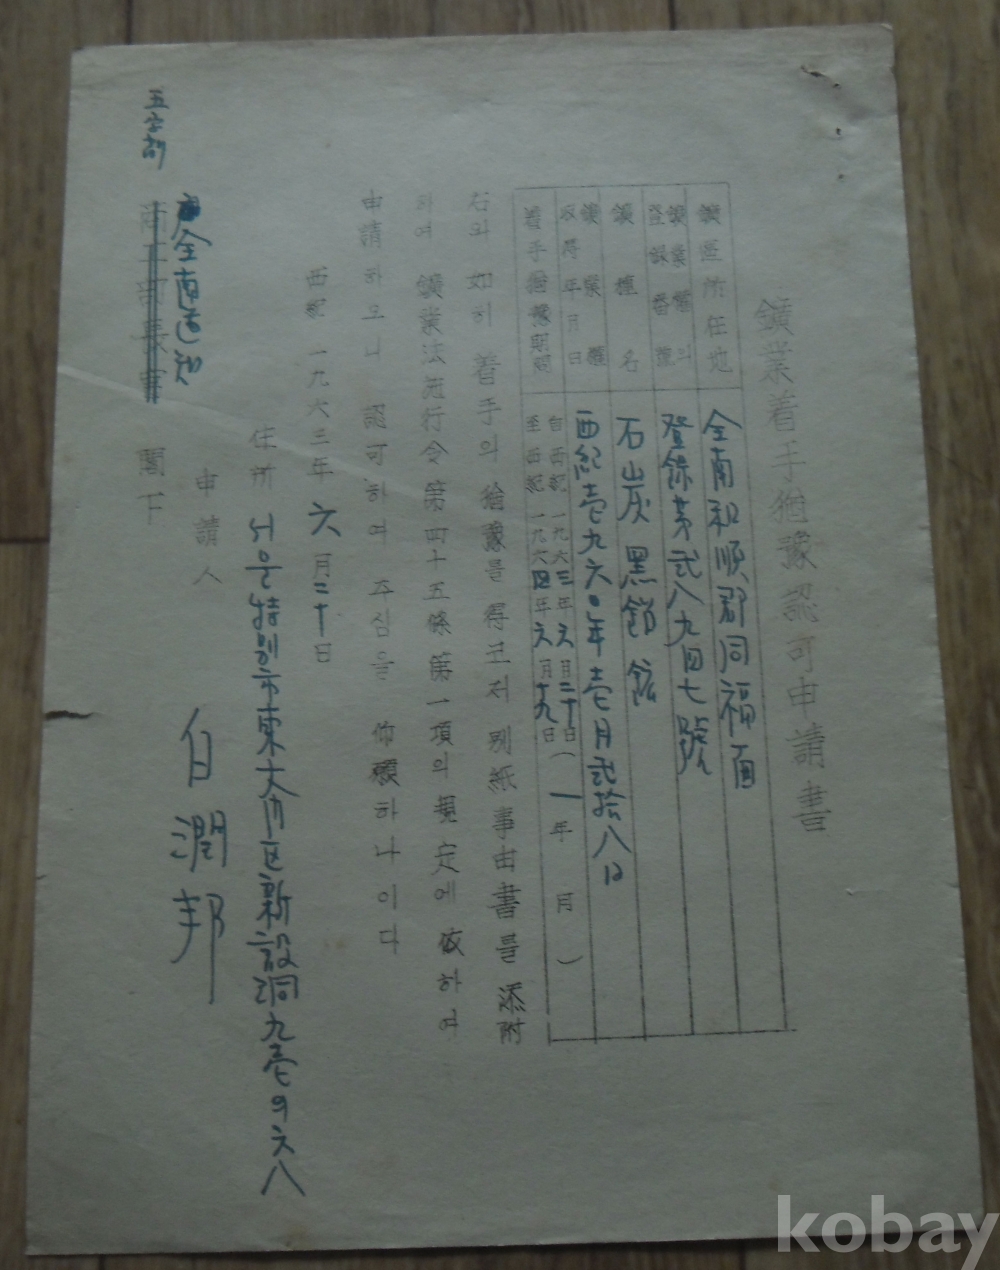 鑛業着手猶豫認可申請書
鑛區所在地 全南和順郡同福面
鑛業權의登錄年番號 登錄第弐八九四七號
鑛種名 石炭 黑鉛
鑛業權取得年月日 西紀壱九六〇年壱月弐拾八日
着手猶豫期間 自西紀一九六三年六月二十日 至西紀一九六四年六月十九日 (一年 月)
右와 如히 着手의 猶豫를 得코저 別紙事由書를 添附
하여 鑛業法施行令第四十五條第一項의 規定에 依하여
申請하오니 認可하여 주심을 仰願하나이다
西紀 一九六三年 六月二十日
住所 서울特別市東大門区新設洞九壱의六八
申請人 白潤邦
全南道知
商工部長官 閣下